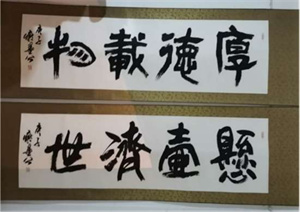 厚德載物
懸壺濟世